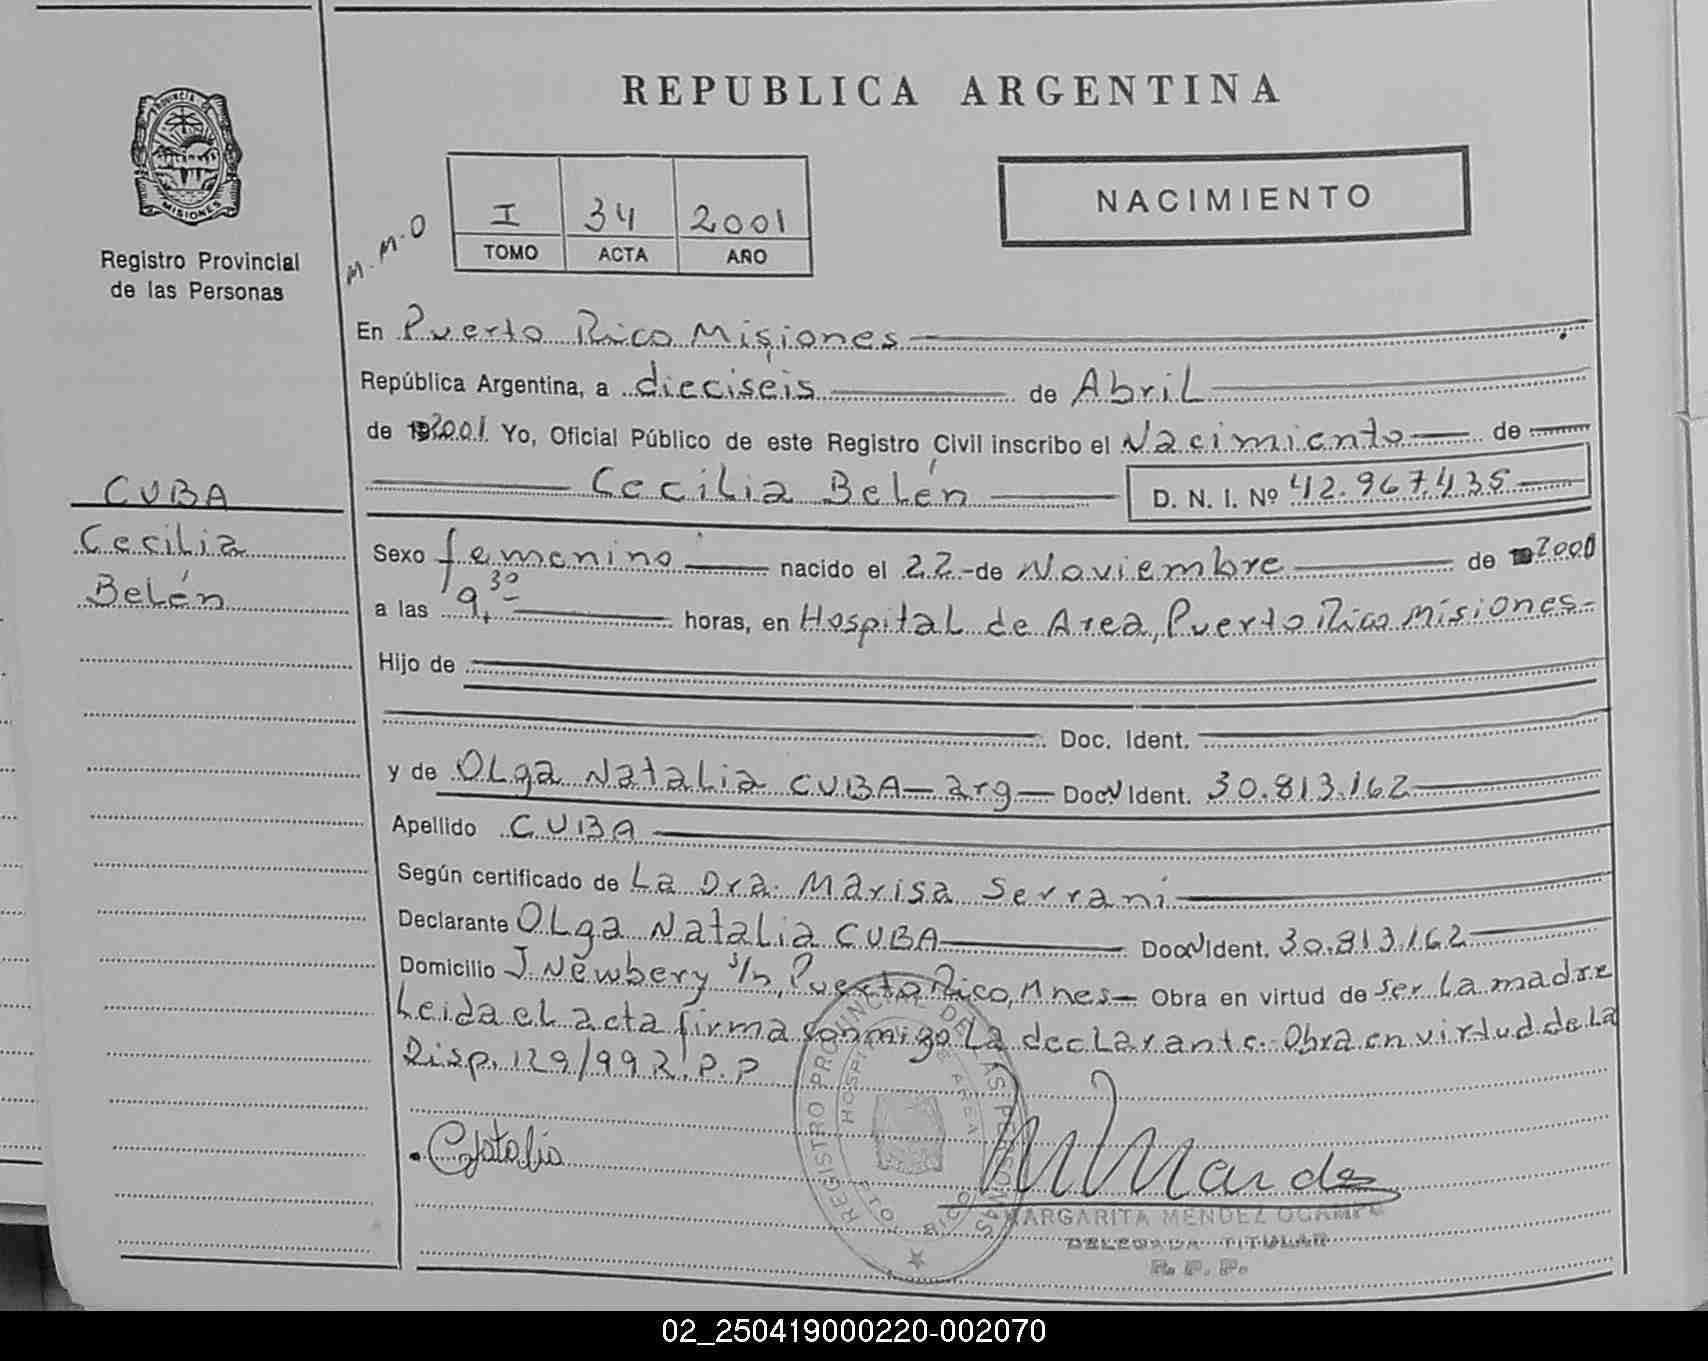 REPUBLICA ARGENTINA
PROVINCIA DE
MISIONES
Registro Provincial
de las Personas
M.M.O
I 34 2001
TOMO ACTA AÑO
NACIMIENTO
En Puerto Rico Misiones
República Argentina, a dieciseis de Abril
de 2001 Yo, Oficial Público de este Registro Civil inscribo el Nacimiento de
Cecilia Belén D. N. I. Nº 42.967.435
CUBA
Cecilia
Belén
Sexo femenino nacido el 22 de Noviembre de 2000
a las 9,30 horas, en Hospital de Area, Puerto Rico Misiones
Hijo de
Doc. Ident.
y de Olga Natalia CUBA - arg - Doc. Ident. 30.813.162
Apellido CUBA
Según certificado de La Dra. Marisa Serrani
Declarante Olga Natalia CUBA Doc. Ident. 30.813.162
Domicilio J. Newbery s/n, Puerto Rico, Mnes - Obra en virtud de ser la madre
Leida el acta firma conmigo la declarante. Obra en virtud de la
Disp. 129/99 R.P.P
REGISTRO PROVINCIAL DE LAS PERSONAS
HOSPITAL DE AREA
PTO. RICO
MARGARITA MENDEZ OCAMPO
DELEGADA TITULAR
R. P. P.
02_250419000220-002070